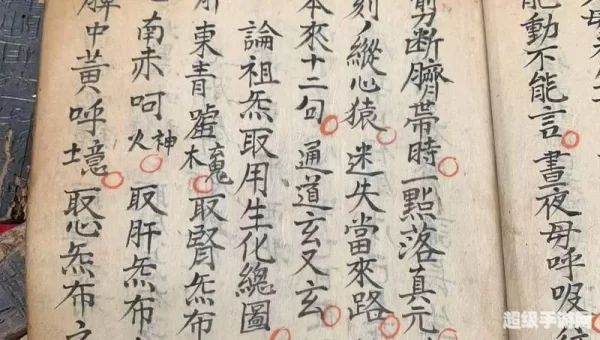 能動不能言晝夜毋呼吸
剪断臍帶時一點落真元
刻ノ縱心猿迷失當來路
本來十二句通道玄又玄
論祖炁取用生化總圖
肝東青嘘木魂取腎炁布
南赤呵火神取肝炁布
脾中黃呼土意取心炁布
超级手游网